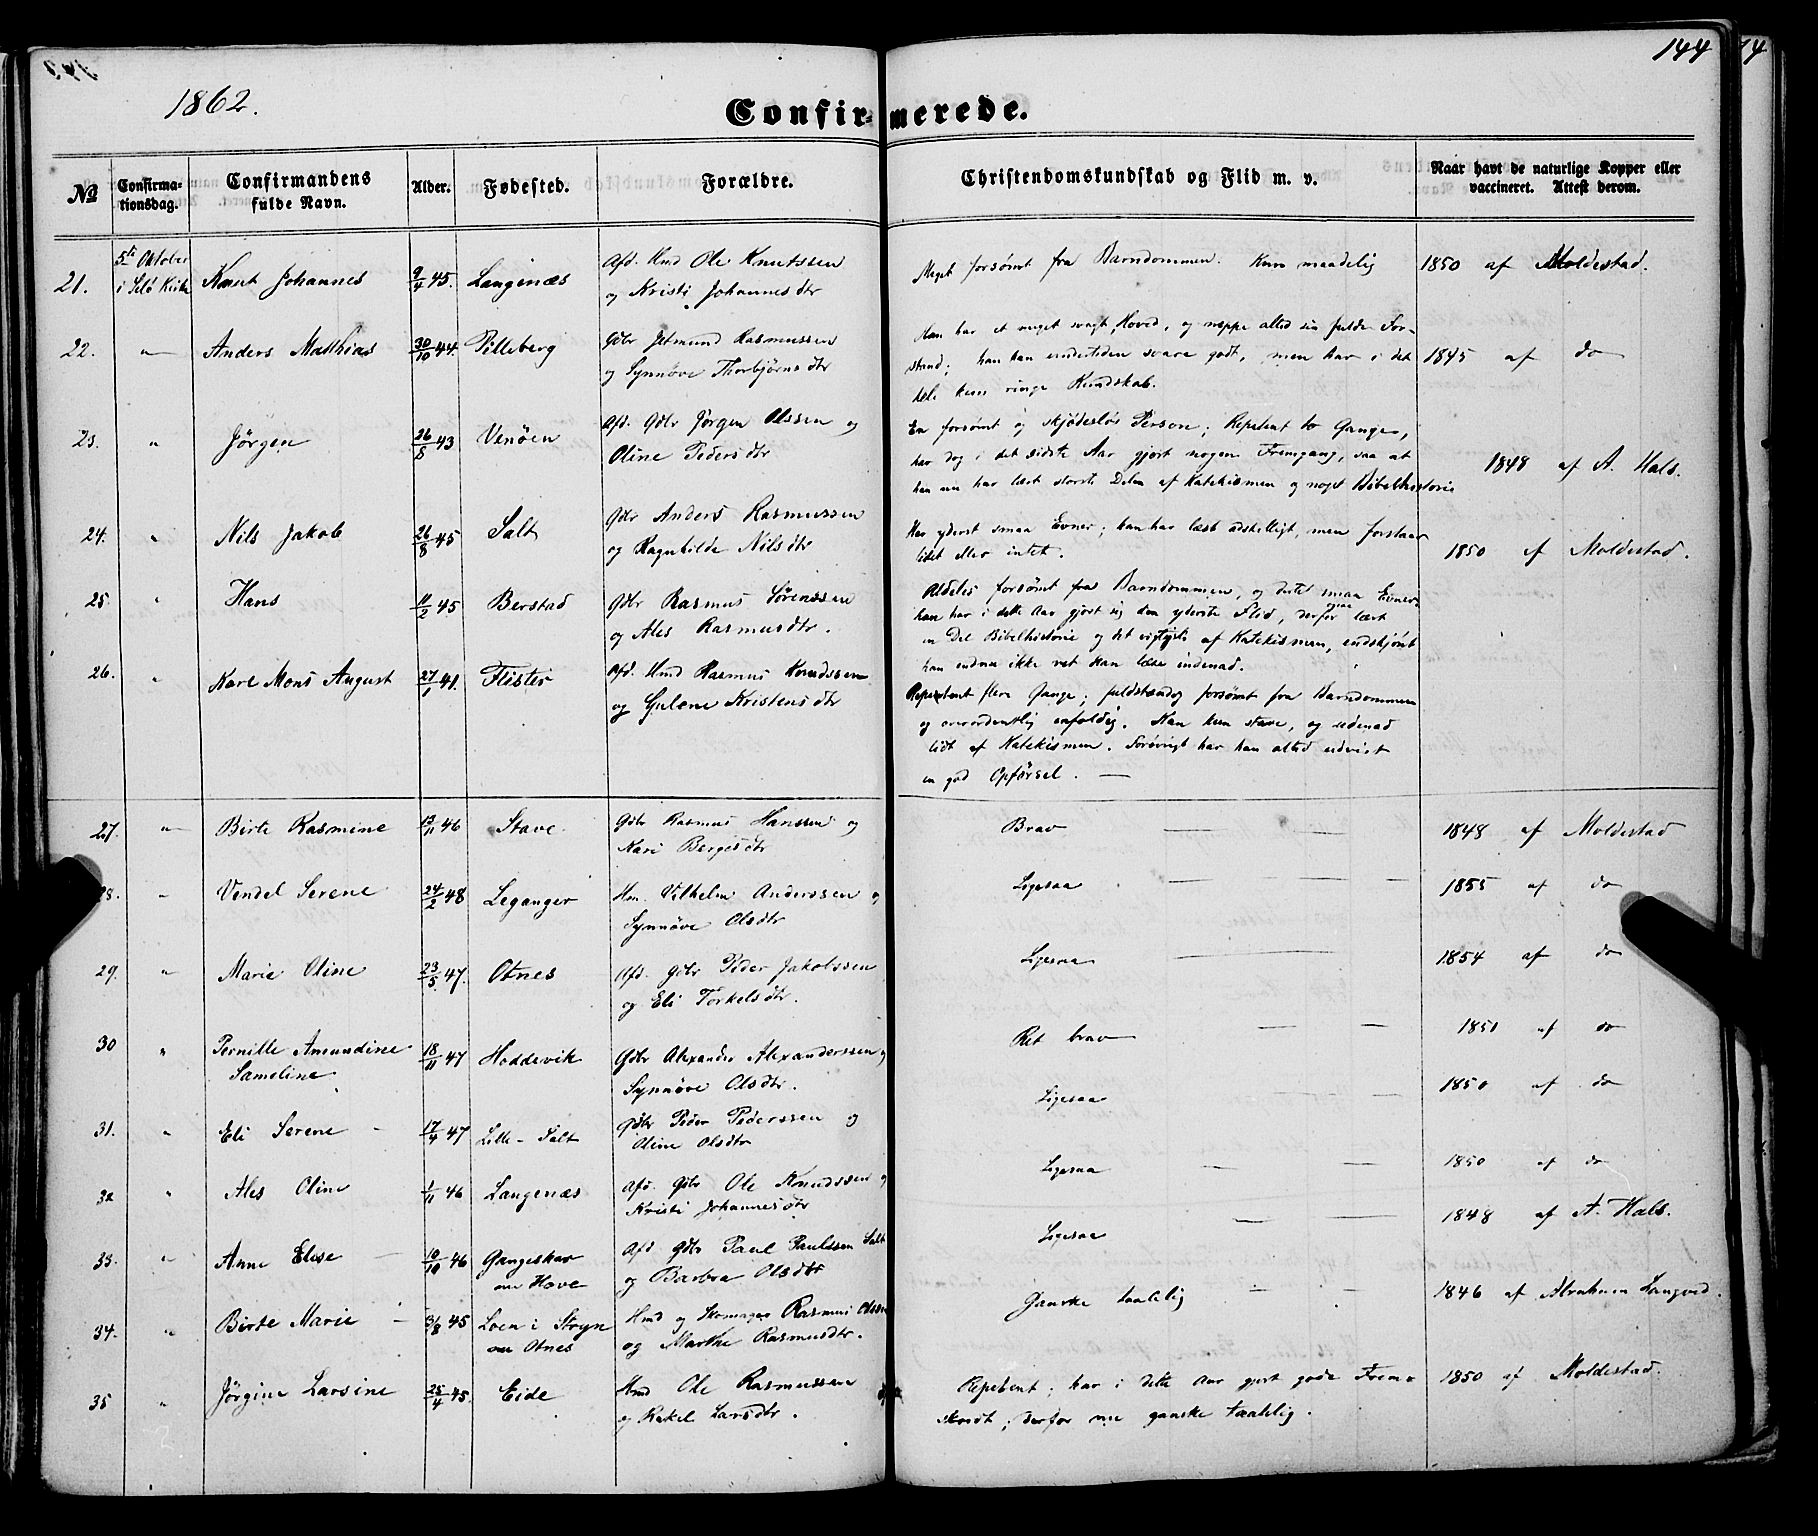 144
1862.
Confirmerede.
No
Confirmationsdag.
Confirmandens fulde Navn.
Alder.
Fødested.
Forældre.
Christendomskundskab og Flid m. v.
Naar havt de naturlige Kopper eller vaccineret. Attest derom.
21. 5te Oktober i Selø Kirke Knut Johannes 9/4 45. Langenæs Afd. Hmd Ole Knutssen Meget forsømt fra Barndommen. Kun maadelig 1850 af Moldestad.
og Kristi Johannesdtr
22. " Anders Matthias 30/10 44. Pilleberg Gdbr Jetmund Rasmussen Han har et meget svagt Hoved, og neppe altid sin fulde For-
og Synnøve Thorbjørnsdtr stand; han kan undertiden svare godt, men har i det 1845 af do
hele kun ringe Kundskab.
23. " Jørgen 26/8 43 Venøen Afd. Gdbr Jørgen Olssen og En forsømt og skjødesløs Person; Repetent to Gange,
Oline Pedersdtr har dog i det sidste Aar gjort nogen Fremgang, saa at 1848 af A. Hals.
han nu har lært største Delen af Katekismen og noget Bibelhistorie
24. " Nils Jakob 26/8 45 Salt Gdbr Anders Rasmussen Har yderst smaa Evner; han har læst adskilligt, men forstaar
og Ragnhilde Nilsdtr lidet eller intet. 1850 af Moldestad.
25. " Hans 11/2 45 Berstad Gdbr Rasmus Sørenssen Aldeles forsømt fra Barndommen, og dertil smaa Evner.
og Ales Rasmusdtr. han har i dette Aar gjort sig den yderste Flid, derfor lært
en Del Bibelhistorie og det vigtigste af Katekismen, endskjønt
han endnu ikke ret kan læse indenad.
26. " Karl Mons August 27/1 41. Flister Afd. Hmd Rasmus Knudssen Repetent flere Gange; fuldstændig forsømt fra Barndommen
og Gulene Kristensdtr og overordentlig enfoldig. Kan kun stave, og udenad
lidt af Katekismen. Forøvrigt har han altid udvist
en god Opførsel. —
27. " Birte Rasmine 13/11 46 Stave Gdbr Rasmus Hanssen og Brav — — 1848 af Moldestad
Kari Bergesdtr
28. " Vendel Serene 24/2 48 Leganger Hm. Vilhelm Anderssen og Ligesaa — — — 1855 af do
Synnøve Olsdtr
29. " Marie Oline 23/5 47. Otnes Afd. Gdbr Peder Jakobssen Ligesaa — — 1854 af do
og Eli Torkelsdtr.
30 " Pernille Amundine 18/11 47 Hoddevik Gdbr Alexander Alexanderssen og Ret brav — — 1850 af do
Sameline Synnøve Olsdtr.
31. " Eli Serene 17/4 47 Lille-Salt Gdbr Peder Pederssen og Ligesaa 1850 af do
Oline Olsdtr
32 " Ales Oline 1/11 46 Langenæs Afd. Gdbr Ole Knudssen og Ligesaa — — 1850 af do
Kristi Johannesdtr
33. " Anne Elise 10/10 46 Gangeskar Afd Gdbr Paul Paulssen Salt Ligesaa — — 1848 af A. Hals.
nu Hove og Barbra Olsdtr
34. " Birte Marie 3/8 45 Loen i Stryn Hmd og Skomager Rasmus Olssen Ganske taalelig — — 1846 af Abraham Langved.
nu Otnes og Marthe Rasmusdtr.
35 " Jørgine Larsine 25/4 45. Eide Hmd Ole Rasmussen Repetent; har i dette Aar gjort gode Frem- 1850 af Moldestad.
og Rakel Larsdtr. skridt; derfor nu ganske taalelig.